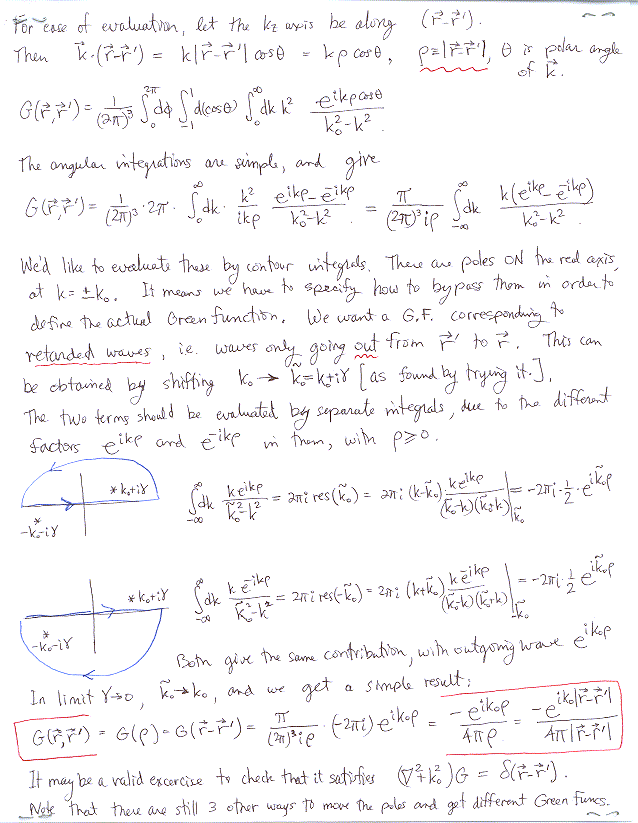 For ease of evaluation, let the kz axis be along (r⃗-r⃗').
Then k⃗·(r⃗-r⃗') = k|r⃗-r⃗'| cosθ = kρ cosθ, ρ=|r⃗-r⃗'|, θ is polar angle
of k⃗.
G(r⃗,r⃗') = 1/(2π)³ ∫₀^2π dφ ∫₋₁^1 d(cosθ) ∫₀^∞ dk k² e^{ikρcosθ}/(k₀²-k²)
The angular integrations are simple, and give
G(r⃗,r⃗') = 1/(2π)³ · 2π · ∫₀^∞ dk · k²/(ikρ) (e^{ikρ}-e^{-ikρ})/(k₀²-k²) = π/((2π)³iρ) ∫₋∞^∞ dk k(e^{ikρ}-e^{-ikρ})/(k₀²-k²).
We'd like to evaluate these by contour integrals. There are poles ON the real axis,
at k=±k₀. It means we have to specify how to bypass them in order to
define the actual Green function. We want a G.F. corresponding to
retarded waves, i.e. waves only going out from r⃗' to r⃗. This can
be obtained by shifting k₀ → k̃₀=k+iγ [as found by trying it.].
The two terms should be evaluated by separate integrals, due to the different
factors e^{ikρ} and e^{-ikρ} in them, with ρ≥0.
* k₀+iγ
* -k₀-iγ
∫₋∞^∞ dk k e^{ikρ}/(k̃₀²-k²) = 2πi res(k̃₀) = 2πi (k-k̃₀) · k e^{ikρ}/((k̃₀-k)(k̃₀+k)) |k̃₀ = -2πi·½·e^{ik̃₀ρ}
* k₀+iγ
* -k₀-iγ
∫₋∞^∞ dk k e^{-ikρ}/(k̃₀²-k²) = 2πi res(-k̃₀) = 2πi (k+k̃₀) k e^{-ikρ}/((k̃₀-k)(k̃₀+k)) |-k̃₀ = -2πi·½ e^{ik̃₀ρ}
Both give the same contribution, with outgoing wave e^{ik₀ρ}
In limit γ→0, k̃₀→k₀, and we get a simple result:
G(r⃗,r⃗') = G(ρ) = G(r⃗-r⃗') = π/((2π)³iρ) · (-2πi) e^{ik₀ρ} = -e^{ik₀ρ}/(4πρ) = -e^{ik₀|r⃗-r⃗'|}/(4π|r⃗-r⃗'|)
It may be a valid excercise to check that it satisfies (∇²+k₀²)G = δ(r⃗-r⃗').
Note that there are still 3 other ways to move the poles and get different Green funcs.